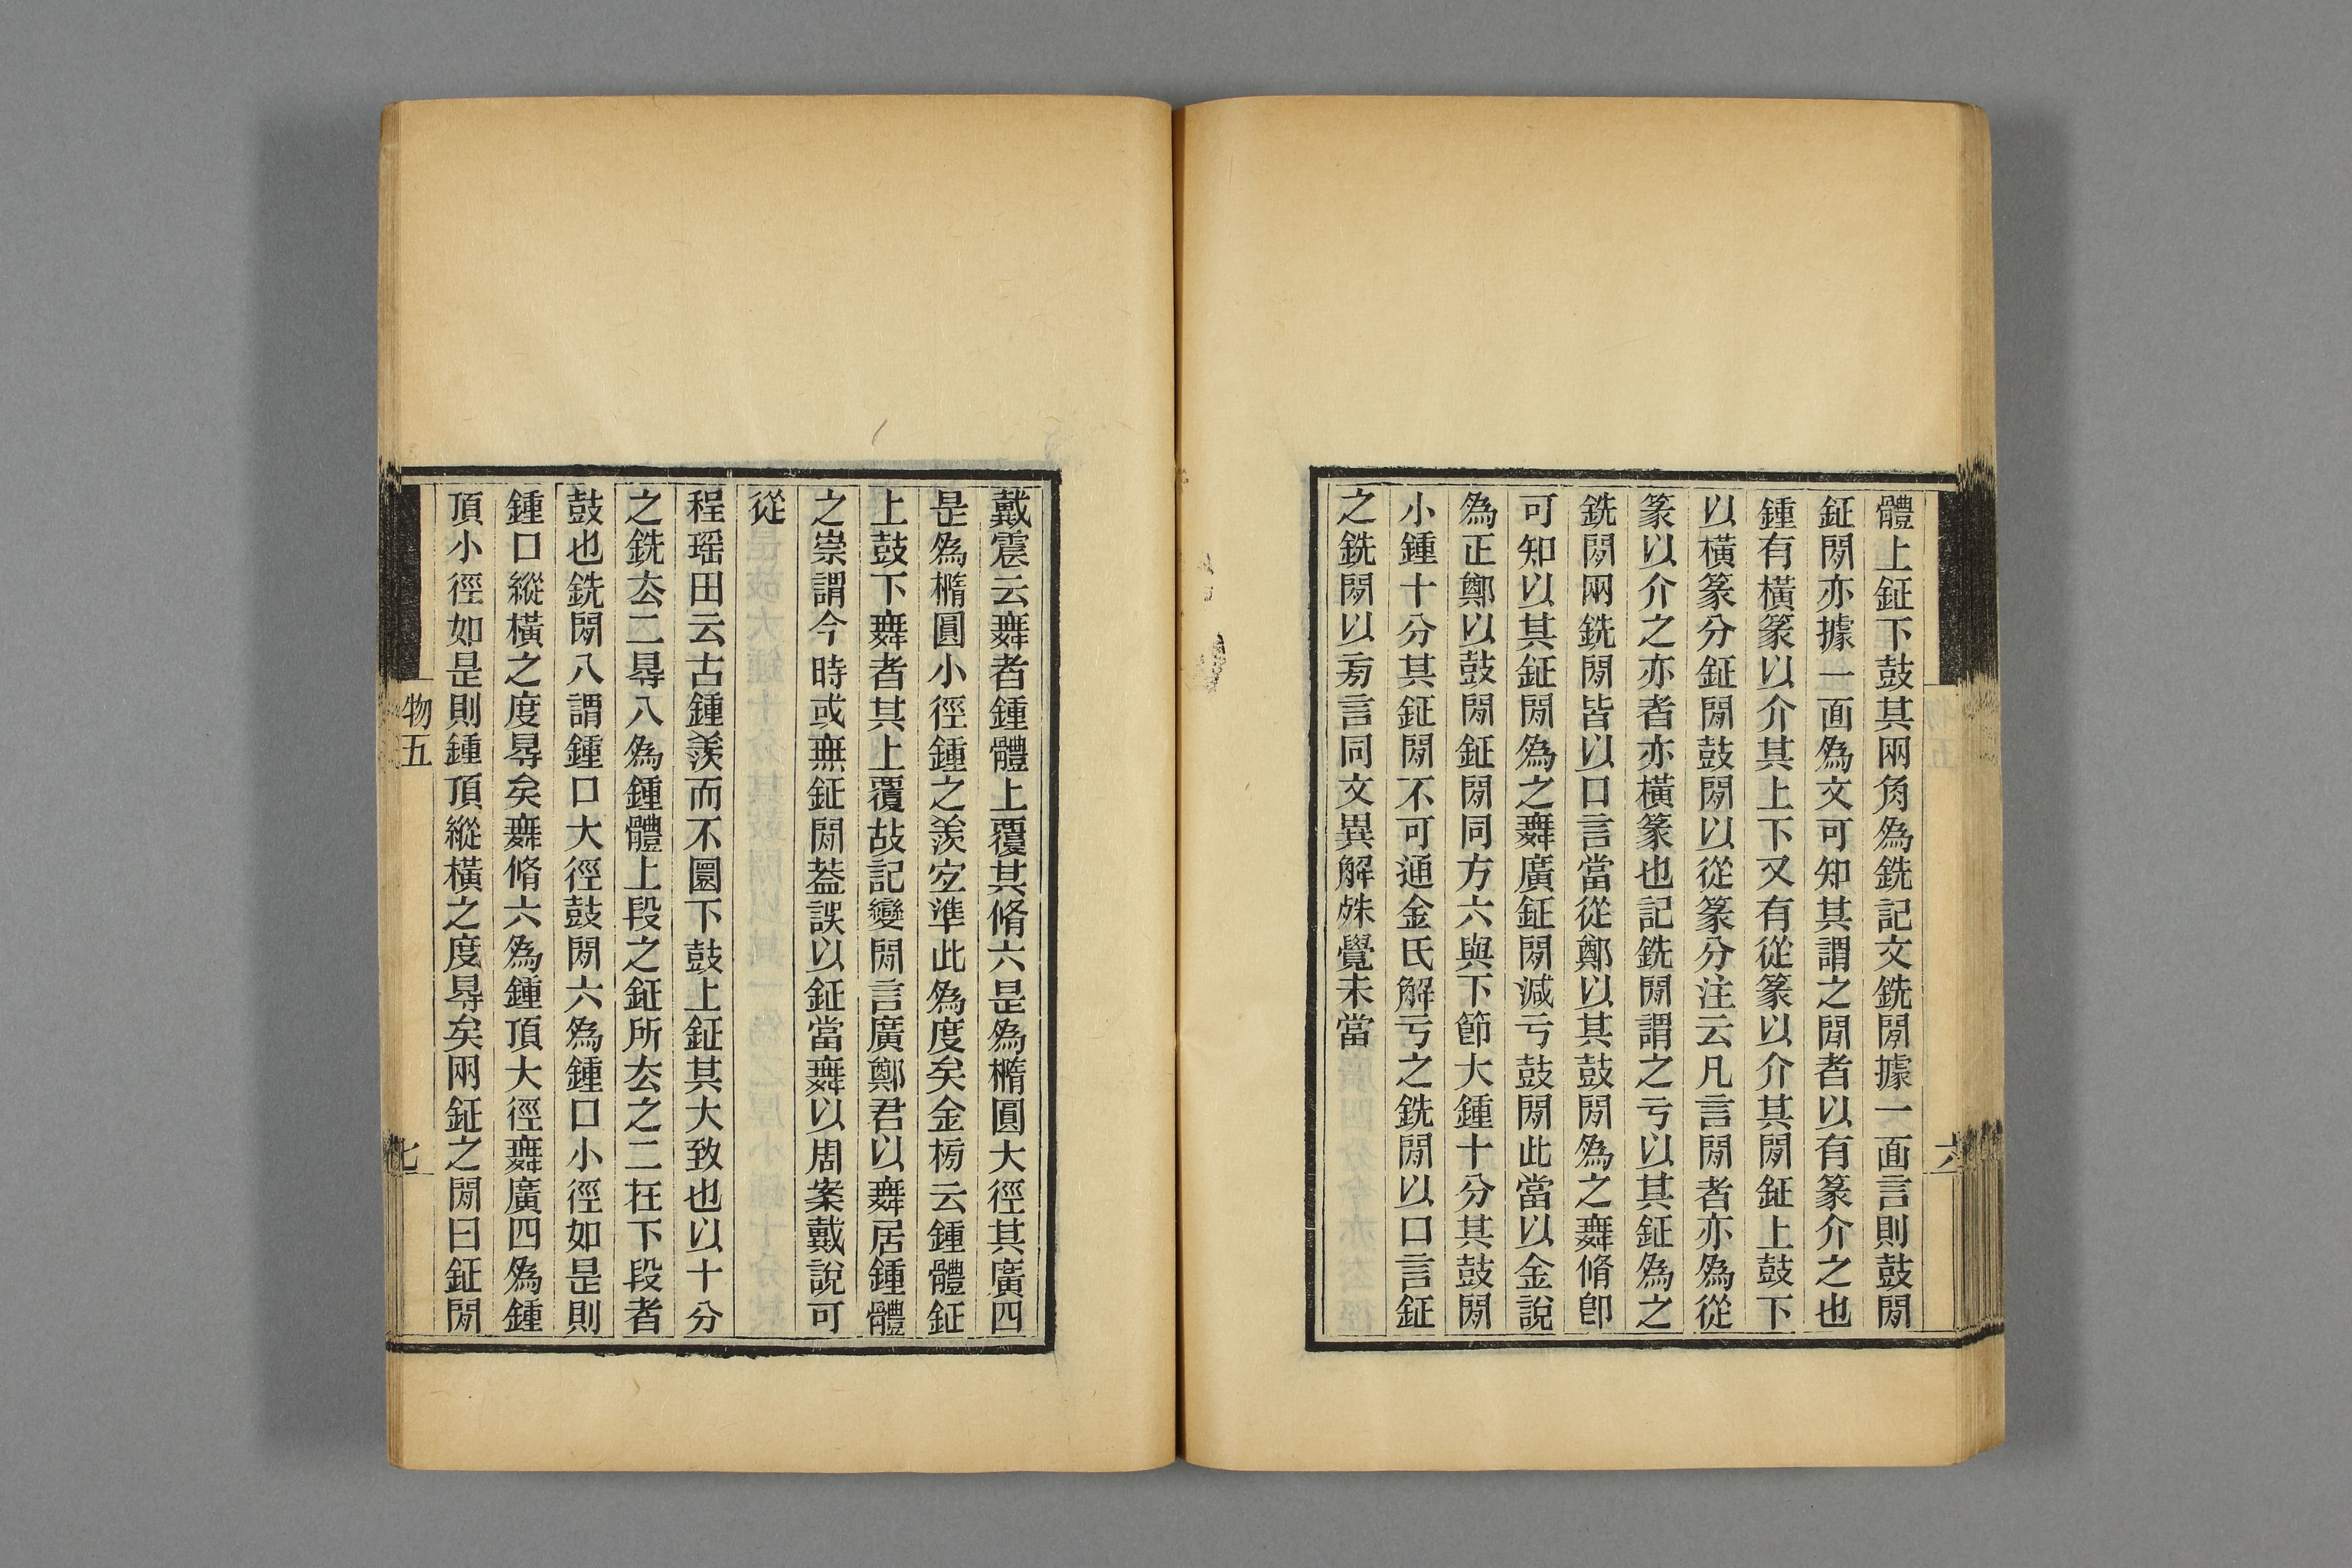 體上鉦下鼓其兩角為銑記文銑閒據一面言則鼓閒
鉦閒亦據一面為文可知其謂之閒者以有篆介之也
鍾有橫篆以介其上下又有從篆以介其閒鉦上鼓下
以橫篆分鉦閒鼓閒以從篆分注云凡言閒者亦為從
篆以介之亦者亦橫篆也記銑閒謂之亏以其鉦為之
銑閒兩銑閒皆以口言當從鄭以其鼓閒為之舞脩卽
可知以其鉦閒為之舞廣鉦閒減亏鼓閒此當以金說
為正鄭以鼓閒鉦閒同方六與下節大鍾十分其鼓閒
小鍾十分其鉦閒不可通金氏解亏之銑閒以口言鉦
之銑閒以㫄言同文異解殊覺未當
六
戴震云舞者鍾體上覆其脩六是為橢圓大徑其廣四
是為橢圓小徑鍾之羨㝎準此為度矣金榜云鍾體鉦
上鼓下舞者其上覆故記變閒言廣鄭君以舞居鍾體
之崇謂今時或無鉦閒葢誤以鉦當舞以周案戴說可
從
程瑶田云古鍾羨而不圜下鼓上鉦其大致也以十分
之銑厺二㝵八為鍾體上段之鉦所厺之二在下段者
鼓也銑閒八謂鍾口大徑鼓閒六為鍾口小徑如是則
鍾口縱橫之度㝵矣舞脩六為鍾頂大徑舞廣四為鍾
頂小徑如是則鍾頂縱橫之度㝵矣兩鉦之閒曰鉦閒
物五
七